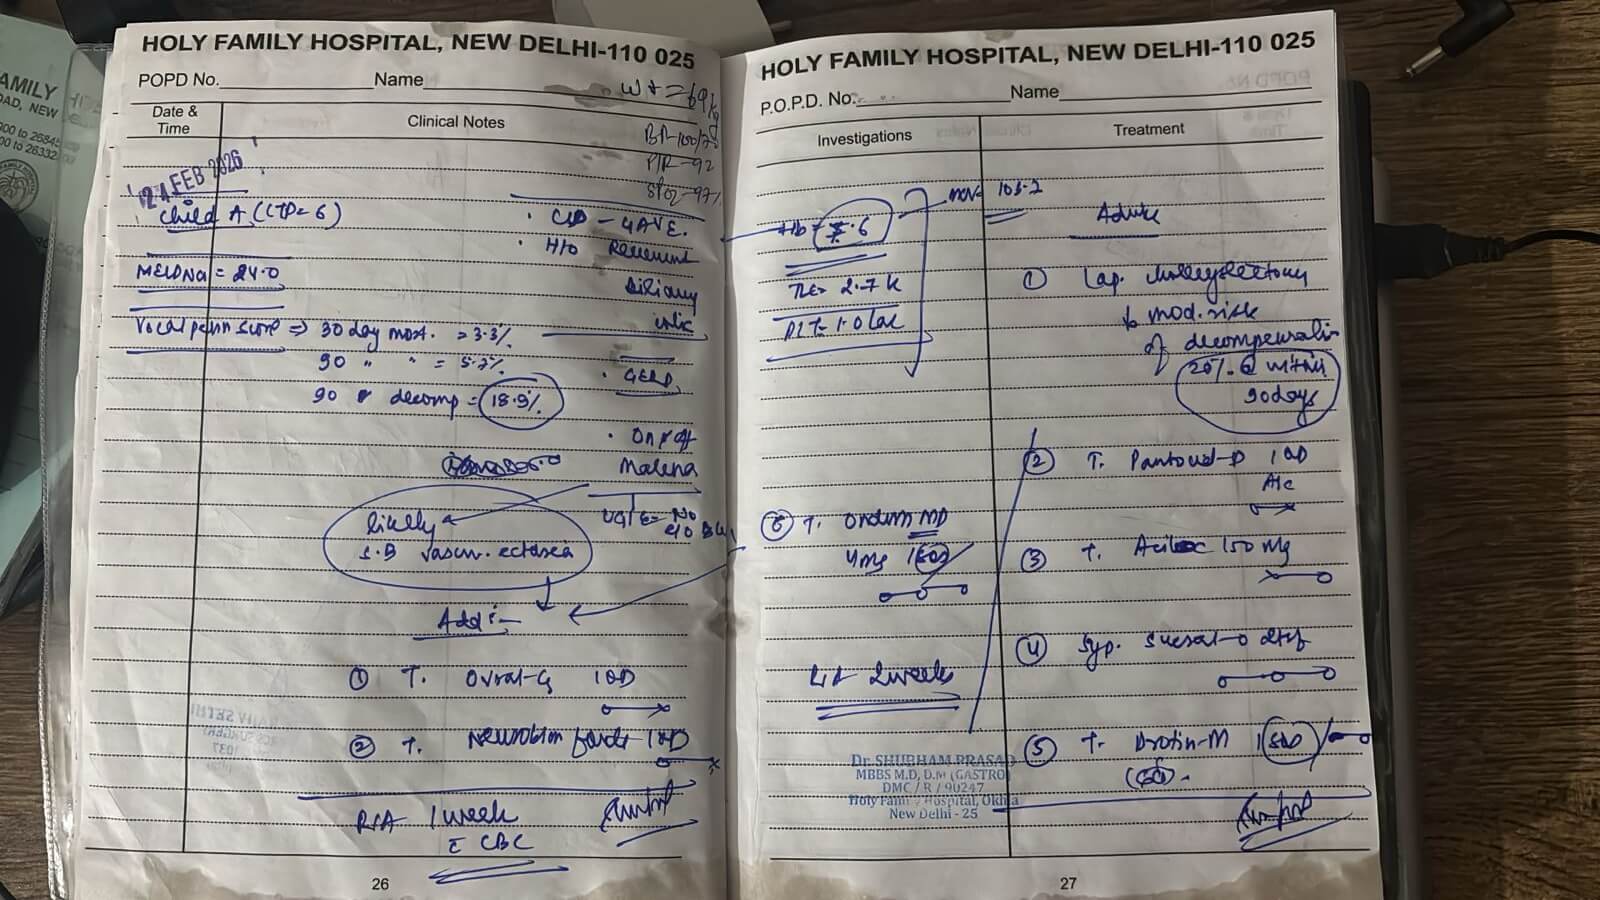 HOLY FAMILY HOSPITAL, NEW DELHI-110 025
POPD No. Name
Wt = 69 kg
Date & Time
Clinical Notes
BP-100/70
PR-92
SPO2-97%
24 FEB 2026
Child A (CTP=6)
• CLD - GAVE.
• H/O Recurrent
biliary
colic
MELDNa = 24.0
Vocal penn score ⇒ 30 day mort. = 3.3%
90 " " = 5.7%
90 decomp = 18.9%
• GERD
• On & off
Malena
UGIE= No
e/o
likely
S.B vascu. ectasia
Add:-
① T. Ovral-G 1OD
② T. Neurobion forte 1OD
R/A 1 week
c CBC
26
HOLY FAMILY HOSPITAL, NEW DELHI-110 025
P.O.P.D. No. Name
Investigations
Treatment
MCV 103.2
Hb = 7.6
TLC= 2.7 K
PLT= 1.0 Lac
Advice
① Lap. cholecystectomy
mod. risk
of decompensation
within
90 days
② T. Pantocid-D 1OD
A/C
③ T. 150 mg
④ Syp. Sucral-O 2tsf
⑤ T. Drotin-M 1 SOS
⑥ T. Ondem MD
4mg 1 SOS
R/A 2 weeks
Dr. SHUBHAM PRASAD
MBBS M.D, D.M (GASTRO)
DMC / R / 90247
Holy Family Hospital, Okhla
New Delhi - 25
27